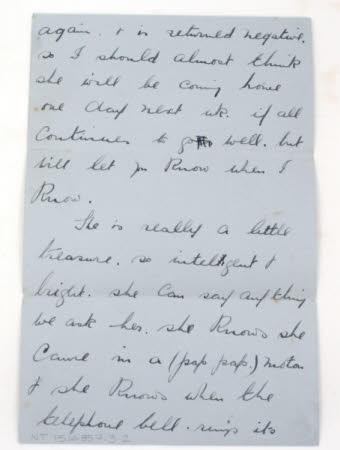 again. & is returned negative.
so I should almost think
she will be coming home
one day next wk. if all
continues to go well. but
will let you know when I
know.
She is really a little
treasure. so intelligent &
bright. she can say anything
we ask her. she knows she
came in a (pap pap.) motor
& she knows when the
telephone bell. rings its